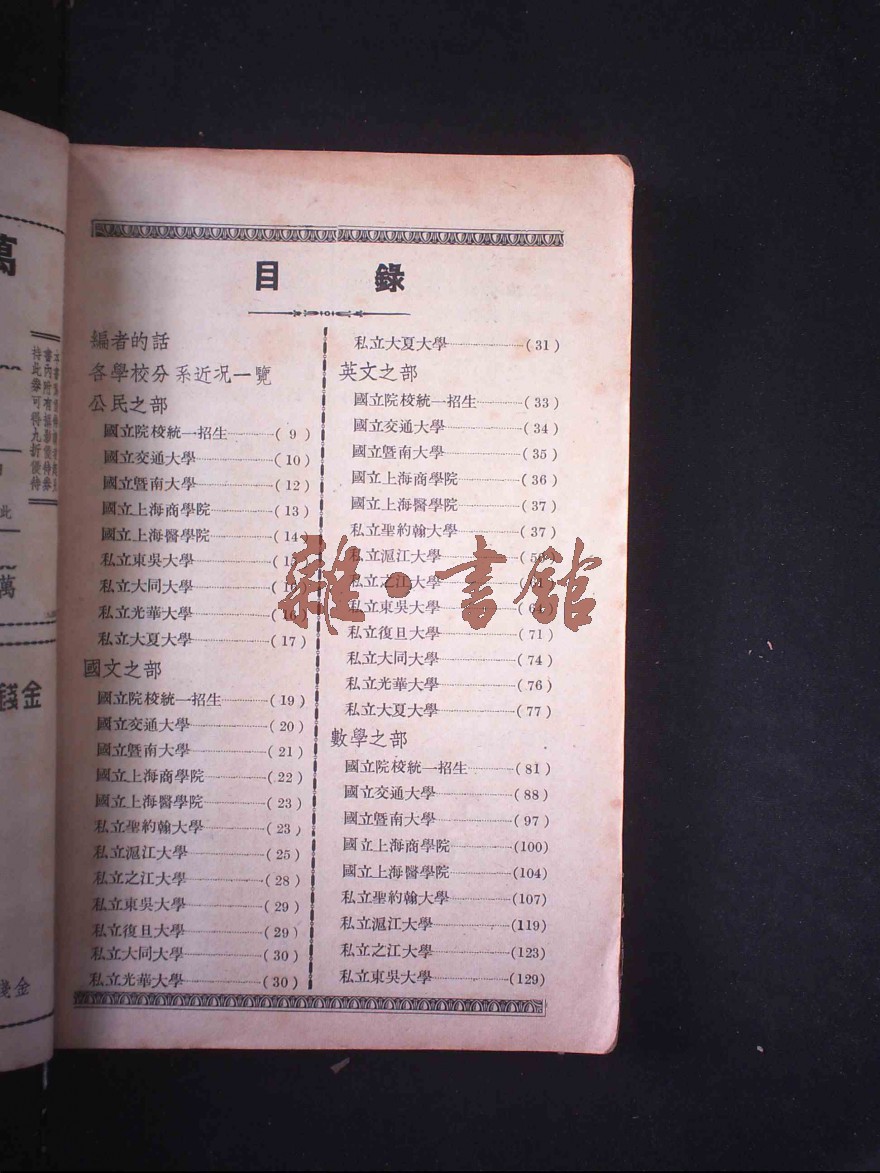 目 錄
編者的話
各學校分系近况一覽
公民之部
國立院校統一招生……(9)
國立交通大學……(10)
國立暨南大學……(12)
國立上海商學院……(13)
國立上海醫學院……(14)
私立東吳大學……(15)
私立大同大學……(16)
私立光華大學……(16)
私立大夏大學……(17)
國文之部
國立院校統一招生……(19)
國立交通大學……(20)
國立暨南大學……(21)
國立上海商學院……(22)
國立上海醫學院……(23)
私立聖約翰大學……(23)
私立滬江大學……(25)
私立之江大學……(28)
私立東吳大學……(29)
私立復旦大學……(29)
私立大同大學……(30)
私立光華大學……(30)
私立大夏大學……(31)
英文之部
國立院校統一招生……(33)
國立交通大學……(34)
國立暨南大學……(35)
國立上海商學院……(36)
國立上海醫學院……(37)
私立聖約翰大學……(37)
私立滬江大學
私立之江大學
私立東吳大學……(64)
私立復旦大學……(71)
私立大同大學……(74)
私立光華大學……(76)
私立大夏大學……(77)
數學之部
國立院校統一招生……(81)
國立交通大學……(88)
國立暨南大學……(97)
國立上海商學院……(100)
國立上海醫學院……(104)
私立聖約翰大學……(107)
私立滬江大學……(119)
私立之江大學……(123)
私立東吳大學……(129)
雜·書館
萬
持此券可得九折優待
此
萬
錢金
金